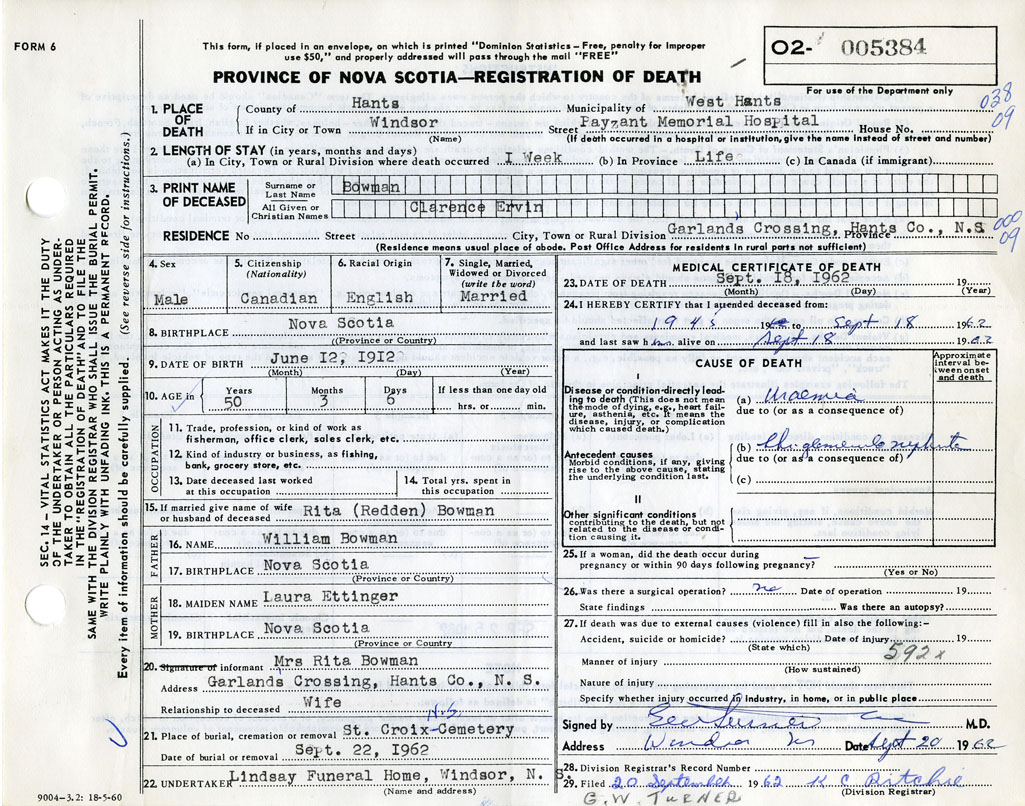 FORM 6
This form, if placed in an envelope, on which is printed "Dominion Statistics – Free, penalty for Improper
use $50," and properly addressed will pass through the mail "FREE"
O2- 005384
For use of the Department only
PROVINCE OF NOVA SCOTIA—REGISTRATION OF DEATH
038
09
1. PLACE OF DEATH
County of Hants Municipality of West Hants
If in City or Town Windsor Street Payzant Memorial Hospital House No.
(Name) (If death occurred in a hospital or institution, give the name instead of street and number)
2. LENGTH OF STAY (in years, months and days)
(a) In City, Town or Rural Division where death occurred I Week (b) In Province Life (c) In Canada (if immigrant)
3. PRINT NAME OF DECEASED
Surname or Last Name Bowman
All Given or Christian Names Clarence Ervin
RESIDENCE No. Street City, Town or Rural Division Garlands Crossing, Hants Co., N.S. Province
000
09
(Residence means usual place of abode. Post Office Address for residents in rural parts not sufficient)
4. Sex
Male
5. Citizenship
(Nationality)
Canadian
6. Racial Origin
English
7. Single, Married,
Widowed or Divorced
(write the word)
Married
8. BIRTHPLACE Nova Scotia
(Province or Country)
9. DATE OF BIRTH June I2, I9I2
(Month) (Day) (Year)
10. AGE in Years Months Days If less than one day old
50 3 6 hrs. or min.
OCCUPATION
11. Trade, profession, or kind of work as
fisherman, office clerk, sales clerk, etc.
12. Kind of industry or business, as fishing,
bank, grocery store, etc.
13. Date deceased last worked
at this occupation
14. Total yrs. spent in
this occupation
15. If married give name of wife
or husband of deceased Rita (Redden) Bowman
FATHER
16. NAME William Bowman
17. BIRTHPLACE Nova Scotia
(Province or Country)
MOTHER
18. MAIDEN NAME Laura Ettinger
19. BIRTHPLACE Nova Scotia
(Province or Country)
20. Signature of informant Mrs Rita Bowman
Address Garlands Crossing, Hants Co., N. S.
Relationship to deceased Wife
N.S
21. Place of burial, cremation or removal St. Croix-Cemetery
Date of burial or removal Sept. 22, I962
22. UNDERTAKER Lindsay Funeral Home, Windsor, N. S.
(Name and address)
MEDICAL CERTIFICATE OF DEATH
23. DATE OF DEATH Sept. I8, I962 19
(Month) (Day) (Year)
24. I HEREBY CERTIFY that I attended deceased from:
194 19 to Sept 18 1962
and last saw him alive on Sept 18 1962
CAUSE OF DEATH
Approximate
interval be-
tween onset
and death
I
Disease or condition-directly lead-
ing to death (This does not mean
the mode of dying, e.g., heart fail-
ure, asthenia, etc. It means the
disease, injury, or complication
which caused death.)
(a) Uraemia
due to (or as a consequence of)
Antecedent causes
Morbid conditions, if any, giving
rise to the above cause, stating
the underlying condition last.
(b)
due to (or as a consequence of)
(c)
II
Other significant conditions
contributing to the death, but not
related to the disease or condi-
tion causing it.
25. If a woman, did the death occur during
pregnancy or within 90 days following pregnancy? –
(Yes or No)
26. Was there a surgical operation? no Date of operation 19
State findings Was there an autopsy?
27. If death was due to external causes (violence) fill in also the following:–
Accident, suicide or homicide? Date of injury 19
(State which)
592x
Manner of injury
(How sustained)
Nature of injury
Specify whether injury occurred in industry, in home, or in public place
Signed by M.D.
Address Windsor NS Date Sept 20 1962
28. Division Registrar's Record Number
29. Filed 20 September 1962 K C Ritchie
(Division Registrar)
G. W. TURNER
SEC. 14 – VITAL STATISTICS ACT MAKES IT THE DUTY
OF THE UNDERTAKER OR PERSON ACTING AS UNDER-
TAKER TO OBTAIN ALL THE PARTICULARS REQUIRED
IN THE "REGISTRATION OF DEATH" AND TO FILE THE
SAME WITH THE DIVISION REGISTRAR WHO SHALL ISSUE THE BURIAL PERMIT.
WRITE PLAINLY WITH UNFADING INK. THIS IS A PERMANENT RECORD.
Every item of information should be carefully supplied. (See reverse side for instructions.)
9004-3.2: 18-5-60